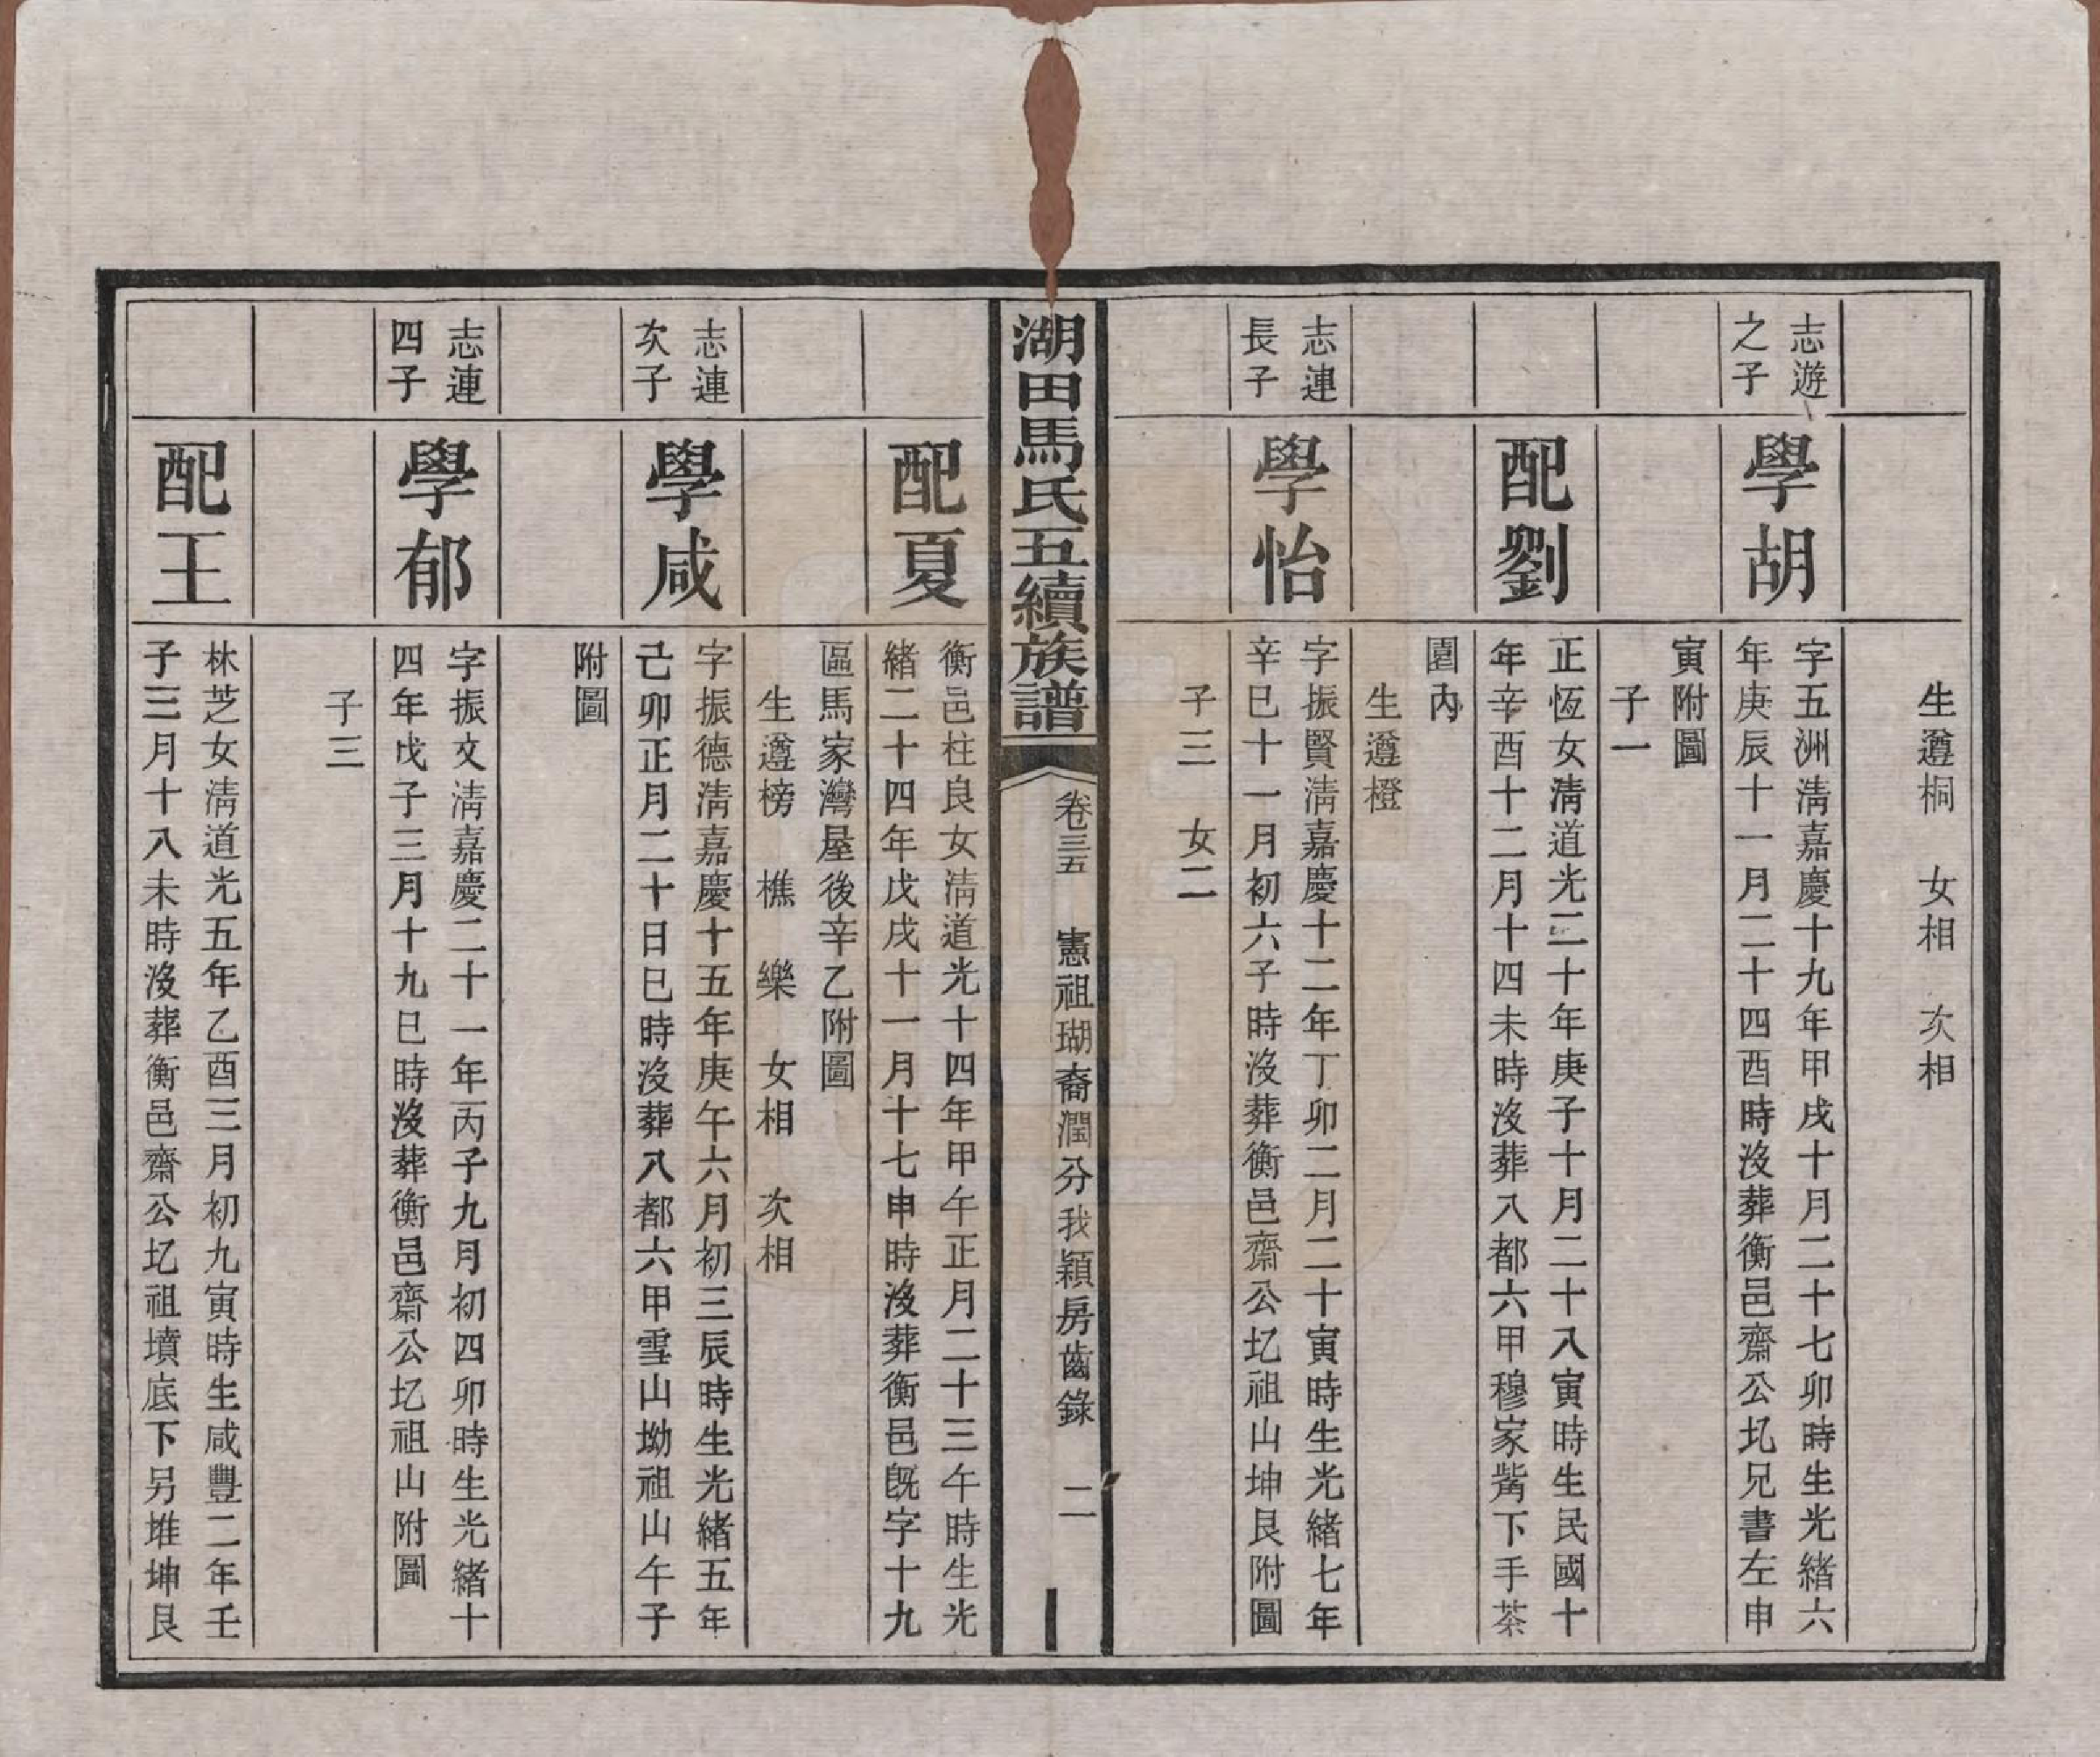 生遵桐　女相　次相
志遊
之子
學胡
字五洲清嘉慶十九年甲戌十月二十七卯時生光緒六
年庚辰十一月二十四酉時沒葬衡邑齋公圠兄書左申
寅附圖
子一
配劉
正恆女清道光二十年庚子十月二十八寅時生民國十
年辛酉十二月十四未時沒葬八都六甲穆家觜下手茶
園內
生遵橙
志連
長子
學怡
字振賢清嘉慶十二年丁卯二月二十寅時生光緒七年
辛巳十一月初六子時沒葬衡邑齋公圠祖山坤艮附圖
子三　女二
湖田馬氏五續族譜
卷三五　憲祖瑚裔潤分我穎房齒錄　二
配夏
衡邑柱良女清道光十四年甲午正月二十三午時生光
緒二十四年戊戌十一月十七申時沒葬衡邑既字十九
區馬家灣屋後辛乙附圖
生遵榜　樵　樂　女相　次相
志連
次子
學咸
字振德清嘉慶十五年庚午六月初三辰時生光緒五年
己卯正月二十日巳時沒葬八都六甲雪山坳祖山午子
附圖
志連
四子
學郁
字振文清嘉慶二十一年丙子九月初四卯時生光緒十
四年戊子三月十九巳時沒葬衡邑齋公圠祖山附圖
子三
配王
林芝女清道光五年乙酉三月初九寅時生咸豐二年壬
子三月十八未時沒葬衡邑齋公圠祖墳底下另堆坤艮